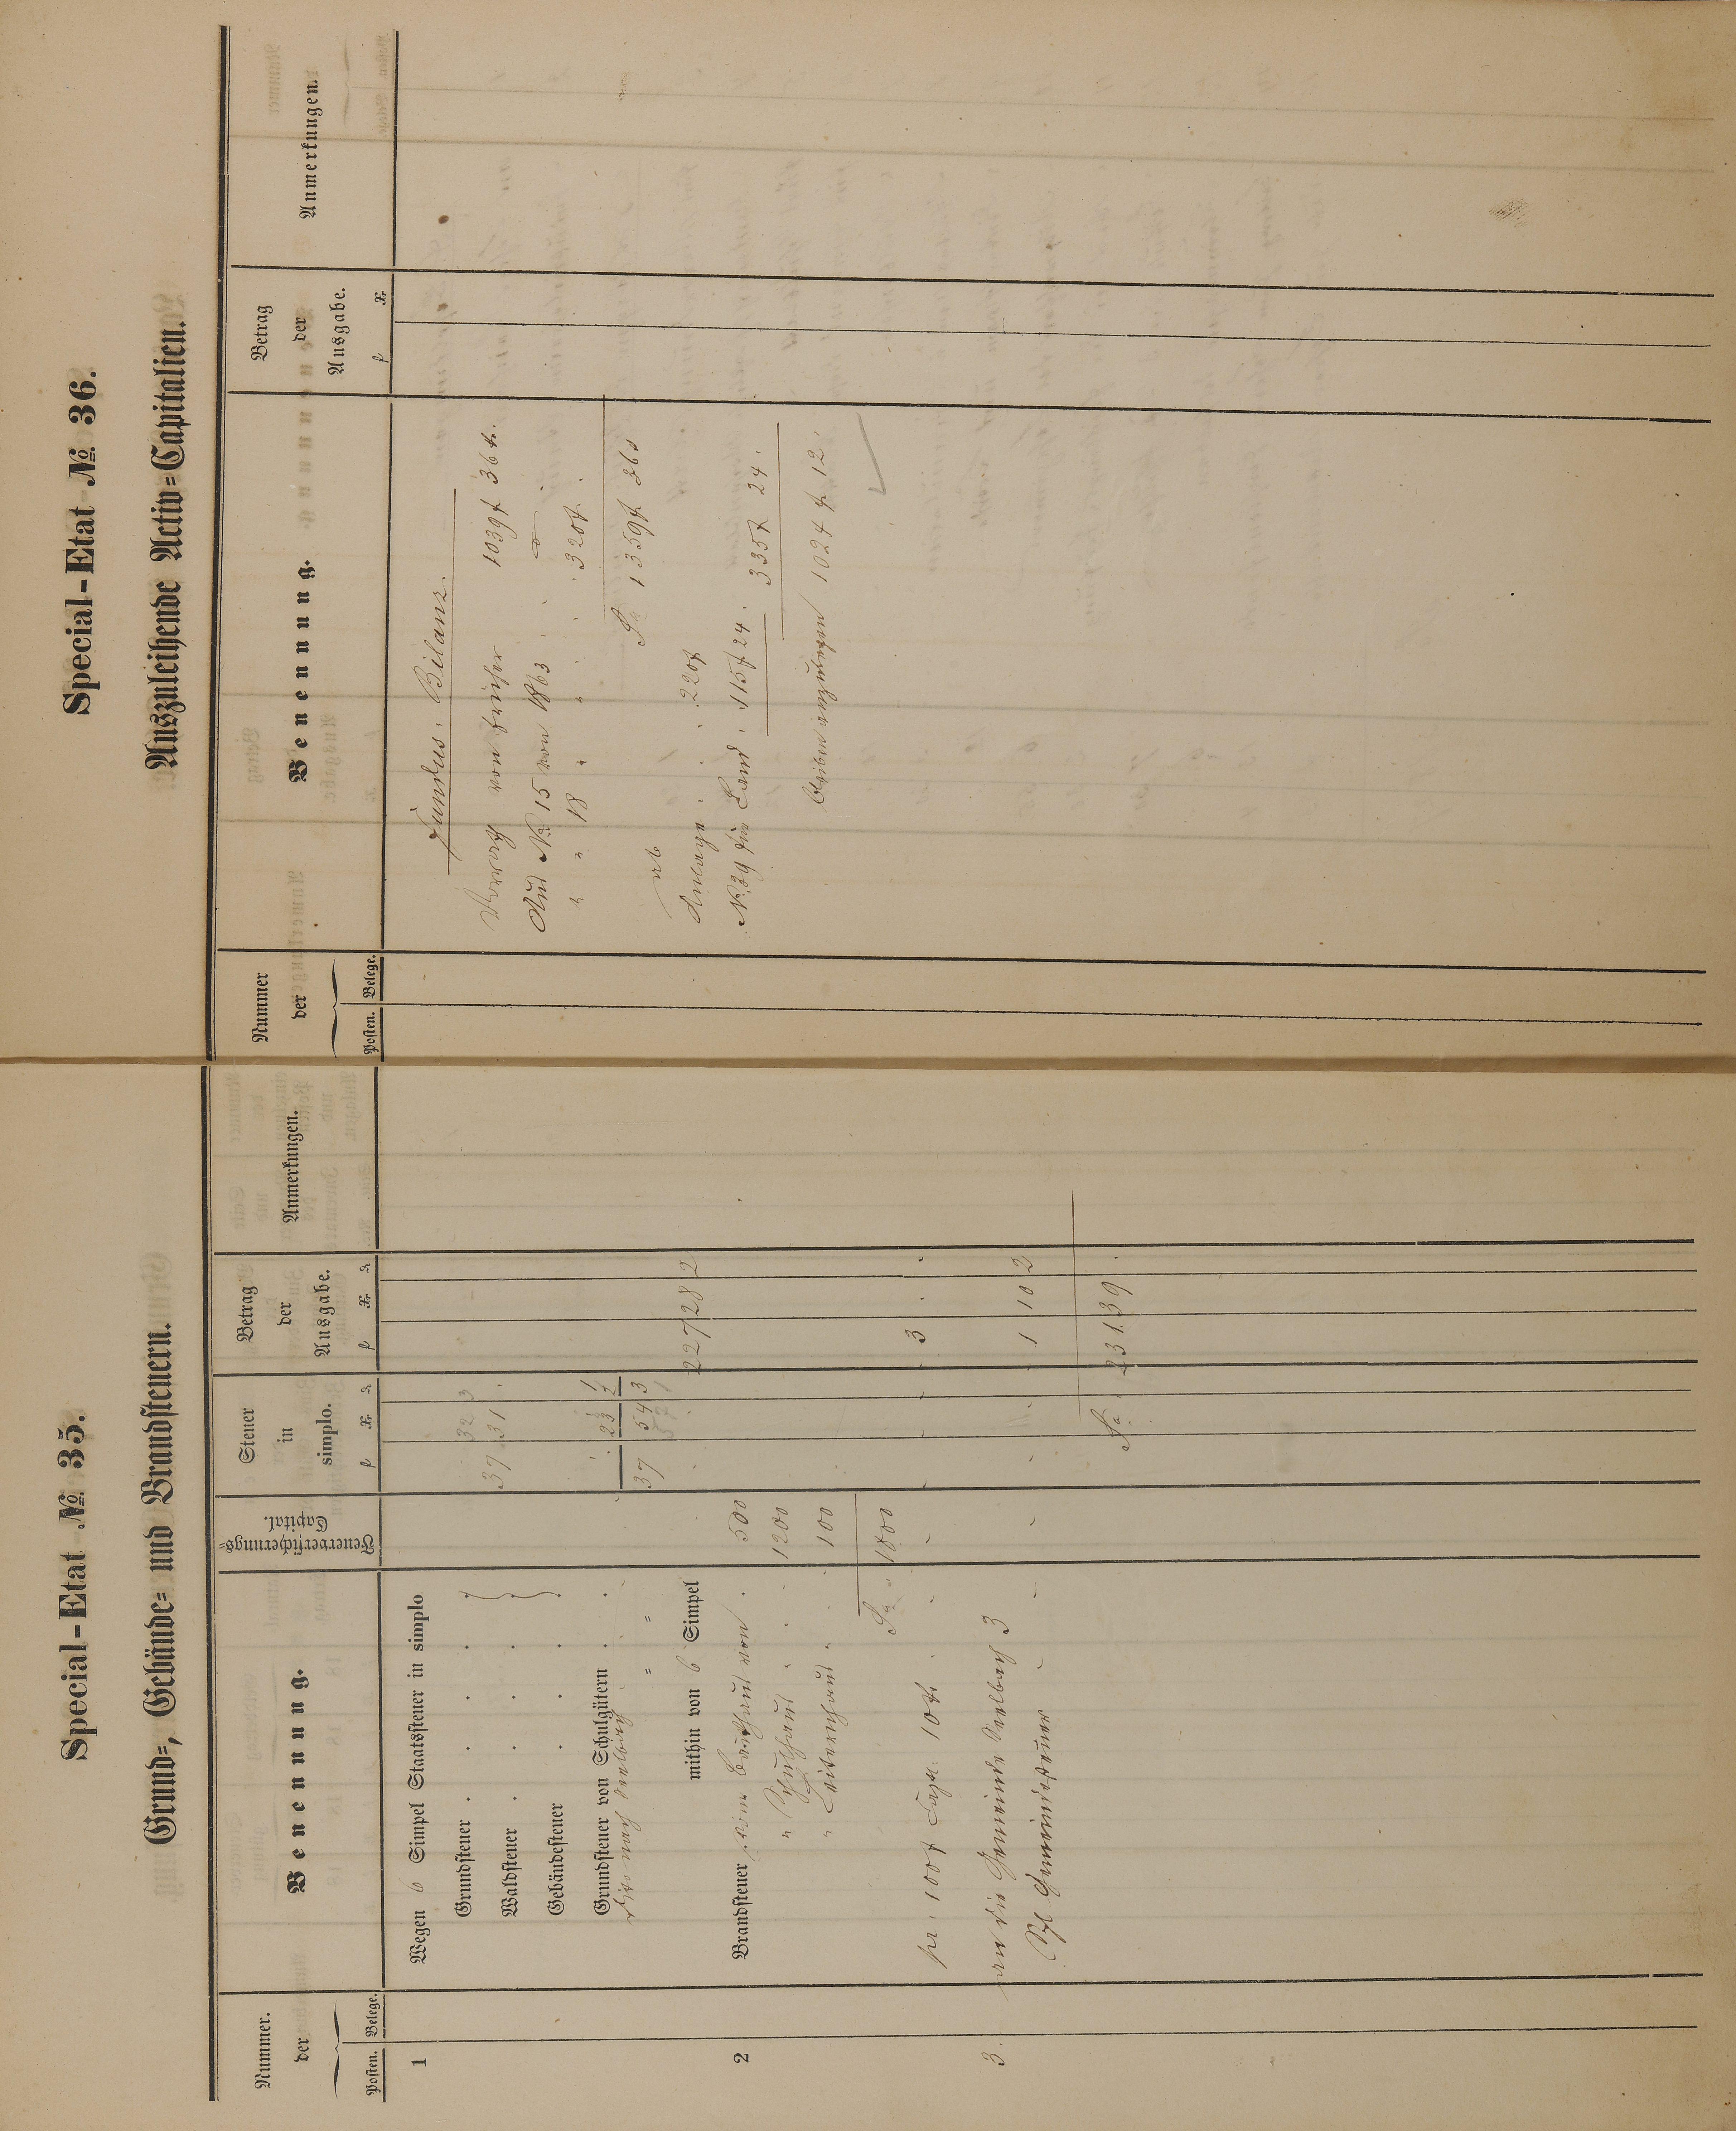 Special-Etat No. 35.
Grund-, Gebäude- und Brandsteuern.
Nummer.
der
Posten. Belege.
Benennung.
Feuerversicherungs-
Capital.
Steuer
in
simplo.
f Xr. ₰
Betrag
der
Ausgabe.
f Xr. ₰
Anmerkungen.
1 Wegen 6 Simpel Staatssteuer in simplo
Grundsteuer . . . . . 32 3
Waldsteuer . . . . 37 31 .
Gebäudesteuer . . .
Grundsteuer von Schulgütern . . 23 ½
37 54 3
mithin von 6 Simpel 227 28 2
2 Brandsteuer vom Backhaus von . 500
" Schulhaus " . 1200
" Leiternhaus " . 100
Sa. 1800
pr. 100 f Capt. 10 Xr. . 3 . .
3. an die Gemeinde Seelbach 3
Spl Gemeindesteuer 1 10 2
Sa. 231.39 .
Special-Etat No. 36.
Auszuleihende Activ-Capitalien.
Nummer
der
Posten. Belege.
Benennung.
Betrag
der
Ausgabe.
f Xr.
Anmerkungen.
Fundus. Bilanz.
Vorrath von früher 1039 f 36 Xr.
Aus No. 15 von 1863 . .
" " 18 " " . . 320 f. .
Sa 1359 f. 36
ab
Anlage . . 220 f
No. 39 für Land . 115 f 24 . 335 f 24 .
bleiben anzulegen 1024 f. 12.